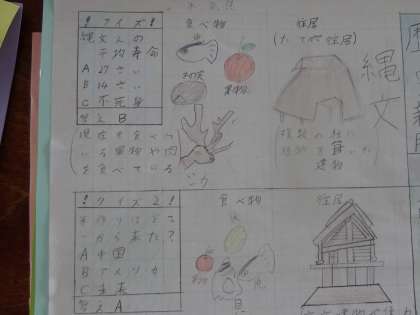 !クイズ!
縄文人の
平均寿命
A 27さい
B 14さい
C 不死身
答え B
現在も食べて
いる果物や肉
を食べている
食べ物
魚
木の実
果物
シカ
住居
(たて穴住居)
植物の
建物
縄文
!クイズ2!
米作りはどこ
から来た?
A 中国
B アメリカ
C 未来
答え A
食べ物
魚
貝
住居